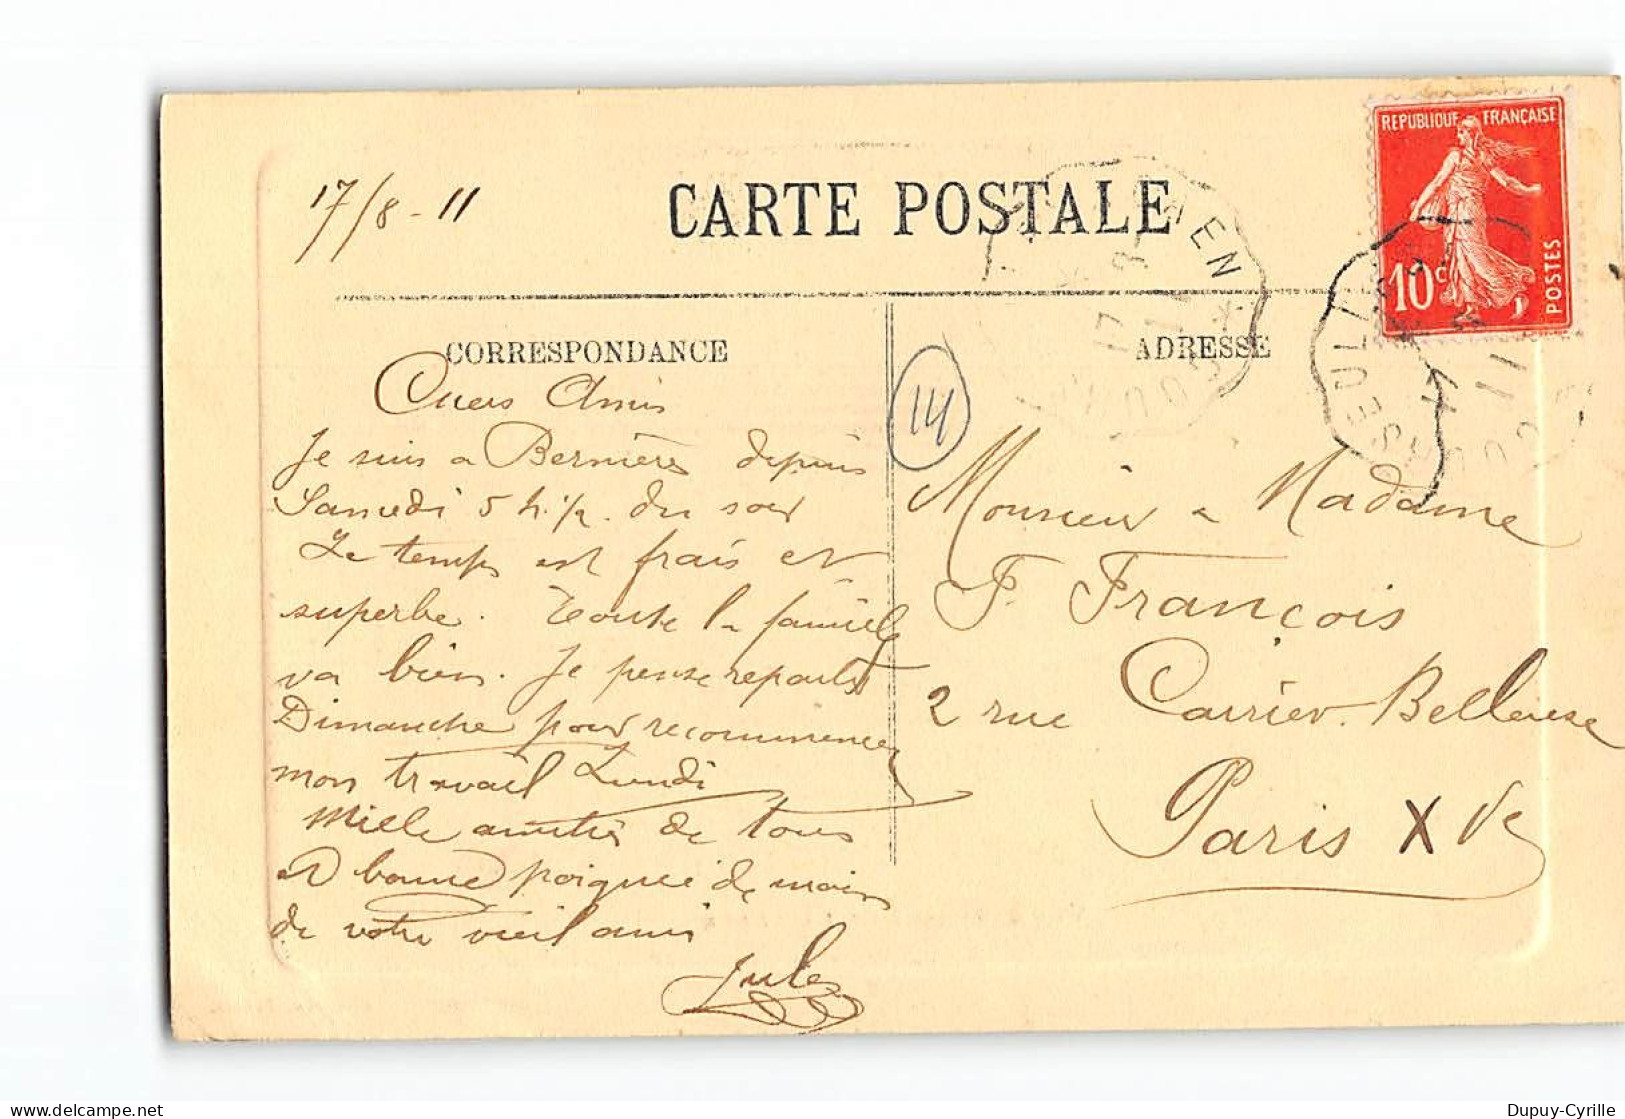 17/8-11
CARTE POSTALE
REPUBLIQUE FRANÇAISE
10c
POSTES
CORRESPONDANCE
ADRESSE
14
Chers Amis
Je suis a Bernières depuis
Samedi 5 h. 1/2. du soir
Le temps est frais et
superbe. Toute la famille
va bien. Je pense repartir
Dimanche pour recommencer
mon travail Lundi
Mille amitiés de tous
et bonne poignée de main
de votre vieil ami
Jules
Monsieur & Madame
F. François
2 rue Carrier-Belleuse
Paris XVe
CAEN
COURSEULLES
17
8
11
Dupuy-Cyrille